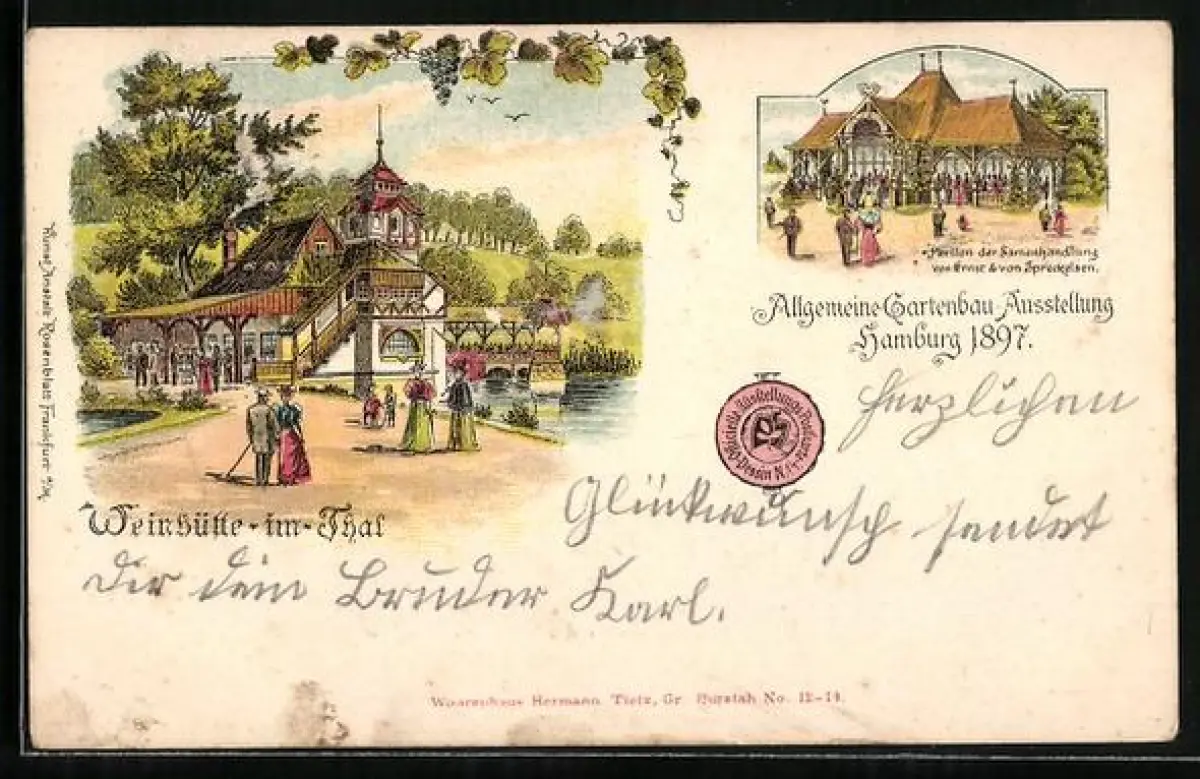 Pavillon der Samenhandlung
von Ernst & von Spreckelsen.
Allgemeine Gartenbau-Ausstellung
Hamburg 1897.
Officielle Ausstellungs-Postkarte
Dessin No.
Weinhütte-im-Thal
Kunst Anstalt Rosenblatt Frankfurt a/M.
Herzlichen
Glückwunsch sendet
Dir dein Bruder Karl.
Waarenhaus Hermann Tietz, Gr. Burstah No. 12-14.